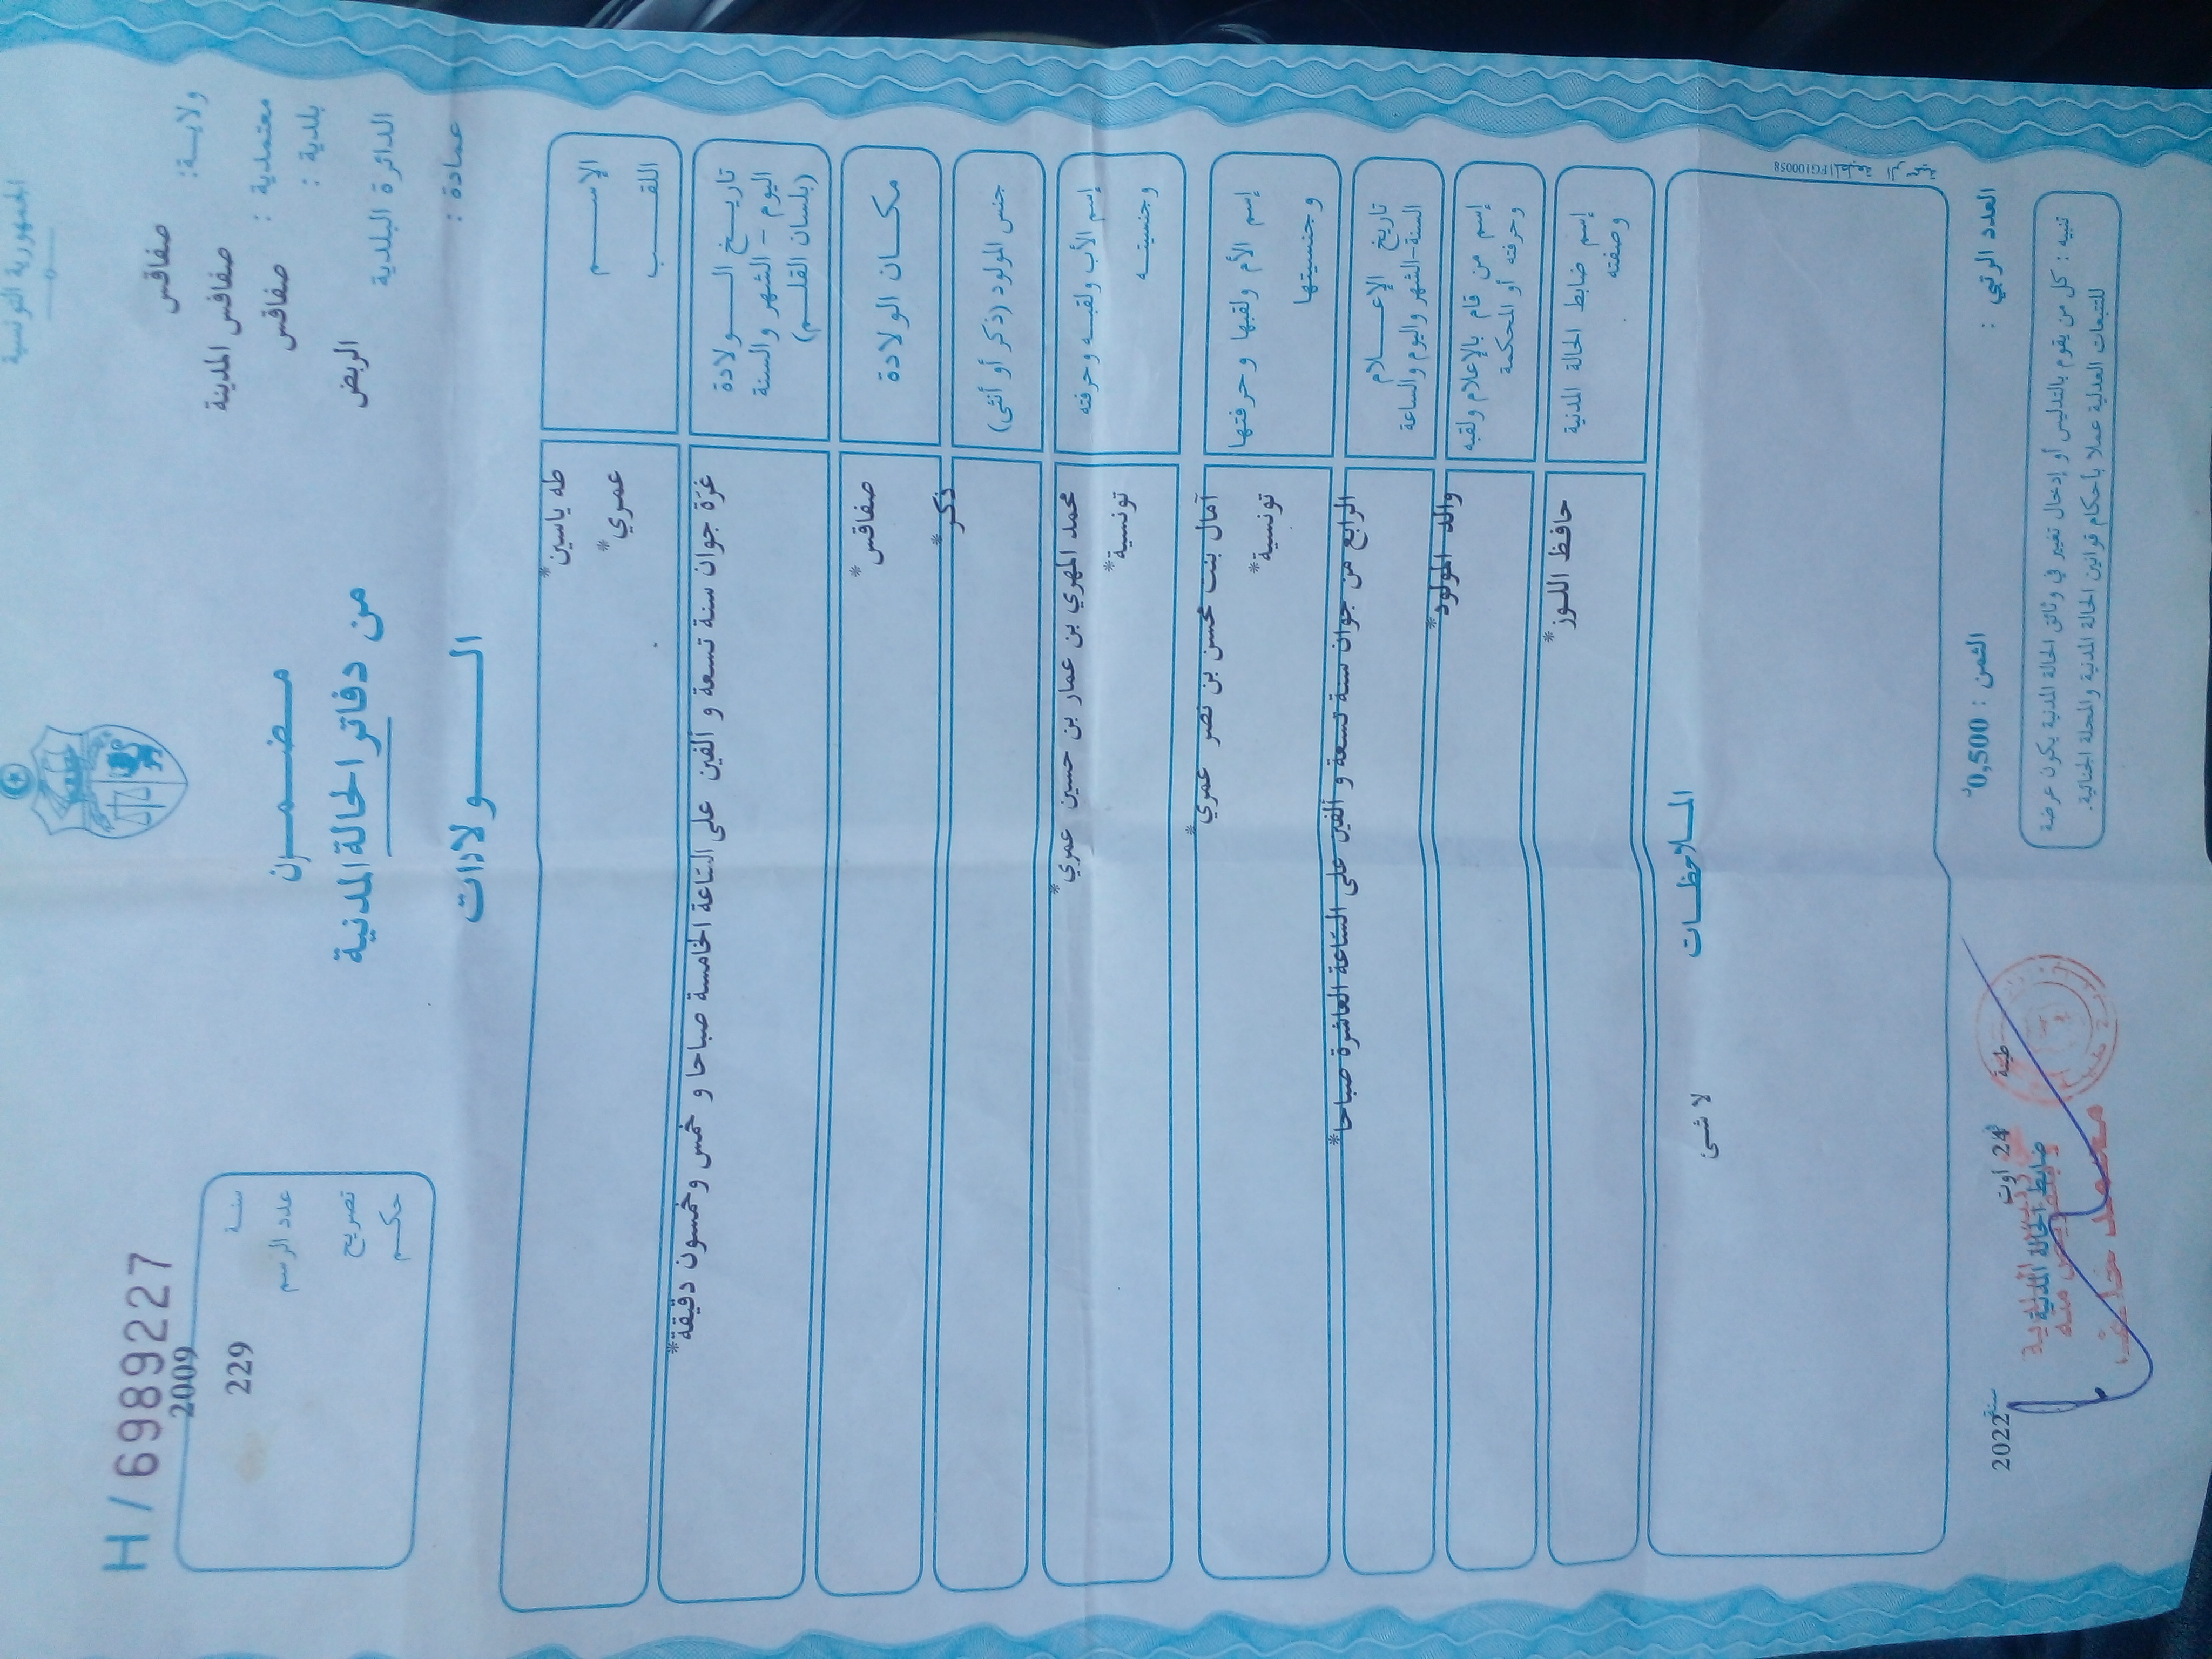 الجمهورية التونسية
ولايـة: صفاقس
معتمدية : صفاقس المدينة
بلدية : صفاقس
الدائرة البلدية الربض
عمادة :
مـضـمـون
من دفاتر الحالة المدنية
الـــولادات
H / 6989227
سنـة 2009
عدد الرسم 229
تصريح
حكـم
الإســـم طه ياسين*
اللقـــب عمري*
تاريــخ الـــولادة
اليوم – الشهر والسنة
(بلسان القلـم)
غرّة جوان سنة تسعة و ألفين على السّاعة الخامسة صباحا و خمس وخمسون دقيقة*
مكـان الولادة صفاقس*
جنس المولود (ذكر أو أنثى) ذكر*
إسم الأب ولقبـه وحرفته محمد المهري بن عمار بن حسين عمري*
وجنسيتـه تونسية*
إسم الأم ولقبها وحرفتها آمال بنت محسن بن نصر عمري*
وجنسيتها تونسية*
تاريخ الإعـــلام
السنة-الشهر واليوم والساعة
الرابع من جوان سنة تسعة و ألفين على السّاعة العاشرة صباحا*
إسم من قام بالإعلام ولقبه
وحرفته أو المحكمة
والد المولود*
إسم ضابط الحالة المدنية
وصفته
حافظ اللـوز*
المـلاحظـات
لا شـى
FG100058
العدد الرتبي :
الثمن : 0,500د
طينة 24 اوت سنة 2022
ضابط الحالة المدنية
تنبيه : كل من يقوم بالتدليس أو إدخال تغيير في وثائق الحالة المدنية يكون عرضة
للتتبعات العدلية عملا بأحكام قوانين الحالة المدنية والمجلة الجنائية.